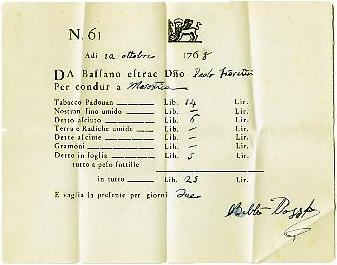 N. 61
Adi 12 ottobre 1768
DA Bassano estrae Dño Paolo
Per condur a Marostica
Tabacco Padouan Lib. 14 Lir.
Nostran fino umido Lib. — Lir.
Detto asciuto Lib. 6 Lir.
Terra e Radiche umide Lib. — Lir.
Dette asciute Lib. — Lir.
Gramoni Lib. — Lir.
Detto in foglia Lib. 5 Lir.
tutto a peso sottille
in tutto Lib. 25 Lir.
E vaglia la presente per giorni Due